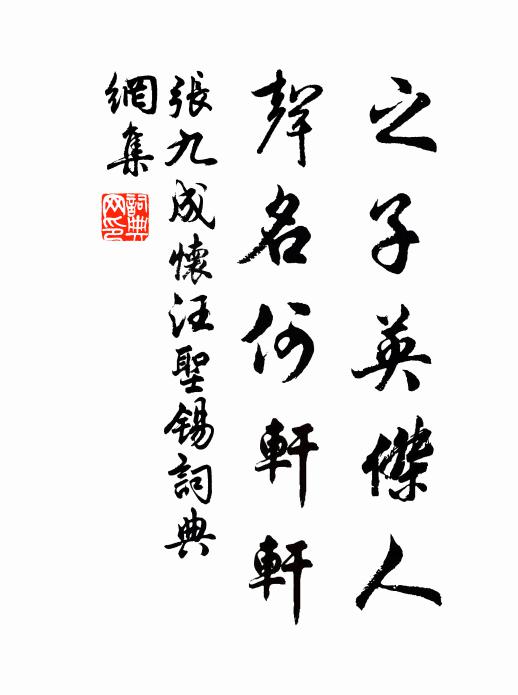 之子英傑人
聲名何軒軒
張九成懷汪聖錫詞典
網集
詞典
网印